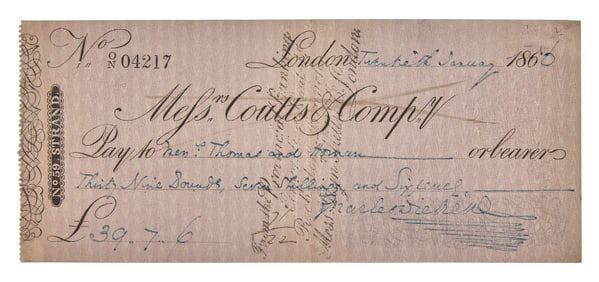 No 04217
London, Twentieth January 1860
Messrs. Coutts & Compy.
Pay to Messrs. Thomas and or bearer
Thirty Nine Pounds, Seven Shillings and Sixpence
Charles Dickens
£39-7-6
No 59, STRAND.